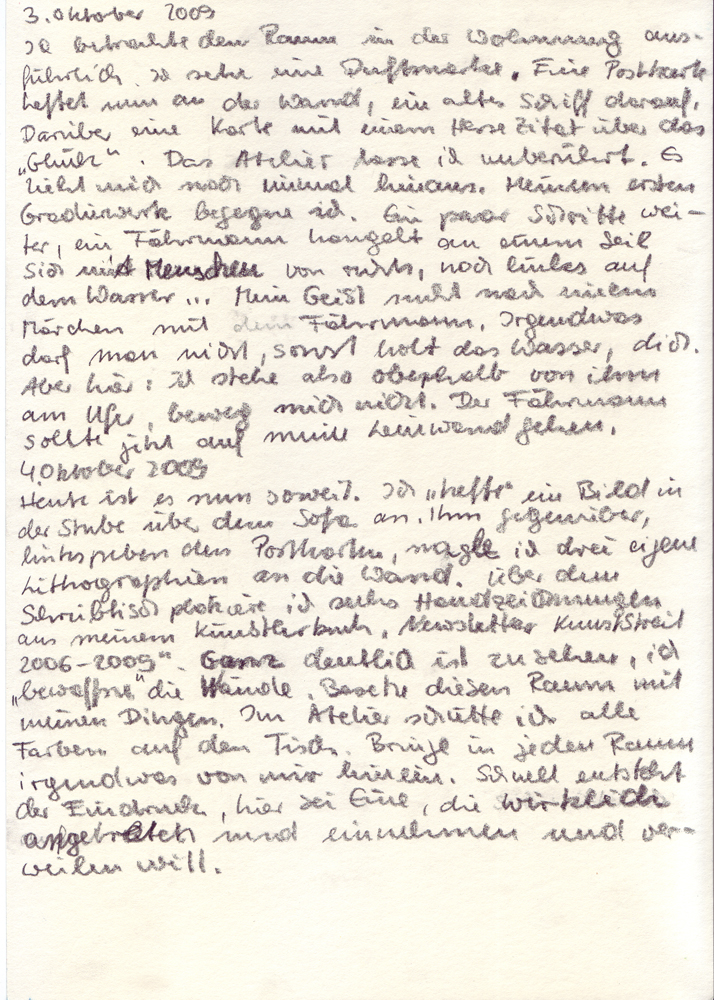 3. Oktober 2009
Ich betrachte den Raum in der Wohnung aus-
führlich. Ich setze eine Duftmarke. Eine Postkarte
heftet nun an der Wand, ein altes Schiff darauf.
Darüber eine Karte mit einem Hesse Zitat über das
„Glück“. Das Atelier lasse ich unberührt. Es
zieht mich noch einmal hinaus. Meinem ersten
Gradierwerk begegne ich. Ein paar Schritte wei-
ter, ein Fährmann hangelt an einem Seil
sich mit Menschen von rechts, nach links auf
dem Wasser... Mein Geist sucht nach einem
Märchen mit dem Fährmann. Irgendwas
darf man nicht, sonst holt das Wasser, dich.
Aber hier: ich stehe also oberhalb von ihm
am Ufer, beweg mich nicht. Der Fährmann
sollte jetzt auf meine Leinwand gehen.
4. Oktober 2009
Heute ist es nun soweit. Ich „hefte“ ein Bild in
der Stube über dem Sofa an. Ihm gegenüber,
links neben den Postkarten, nagle ich drei eigene
Lithographien an die Wand. Über dem
Schreibtisch platziere ich sechs Handzeichnungen
aus meinem Künstlerbuch, „Newsletter KunstStreit
2006-2009“. Ganz deutlich ist zu sehen, ich
„bewaffne“ die Wände. Besetze diesen Raum mit
meinen Dingen. Im Atelier schütte ich alle
Farben auf den Tisch. Bringe in jeden Raum
irgendwas von mir hinein. Schnell entsteht
der Eindruck, hier sei Eine, die wirklich
angetreten und einnehmen und ver-
weilen will.